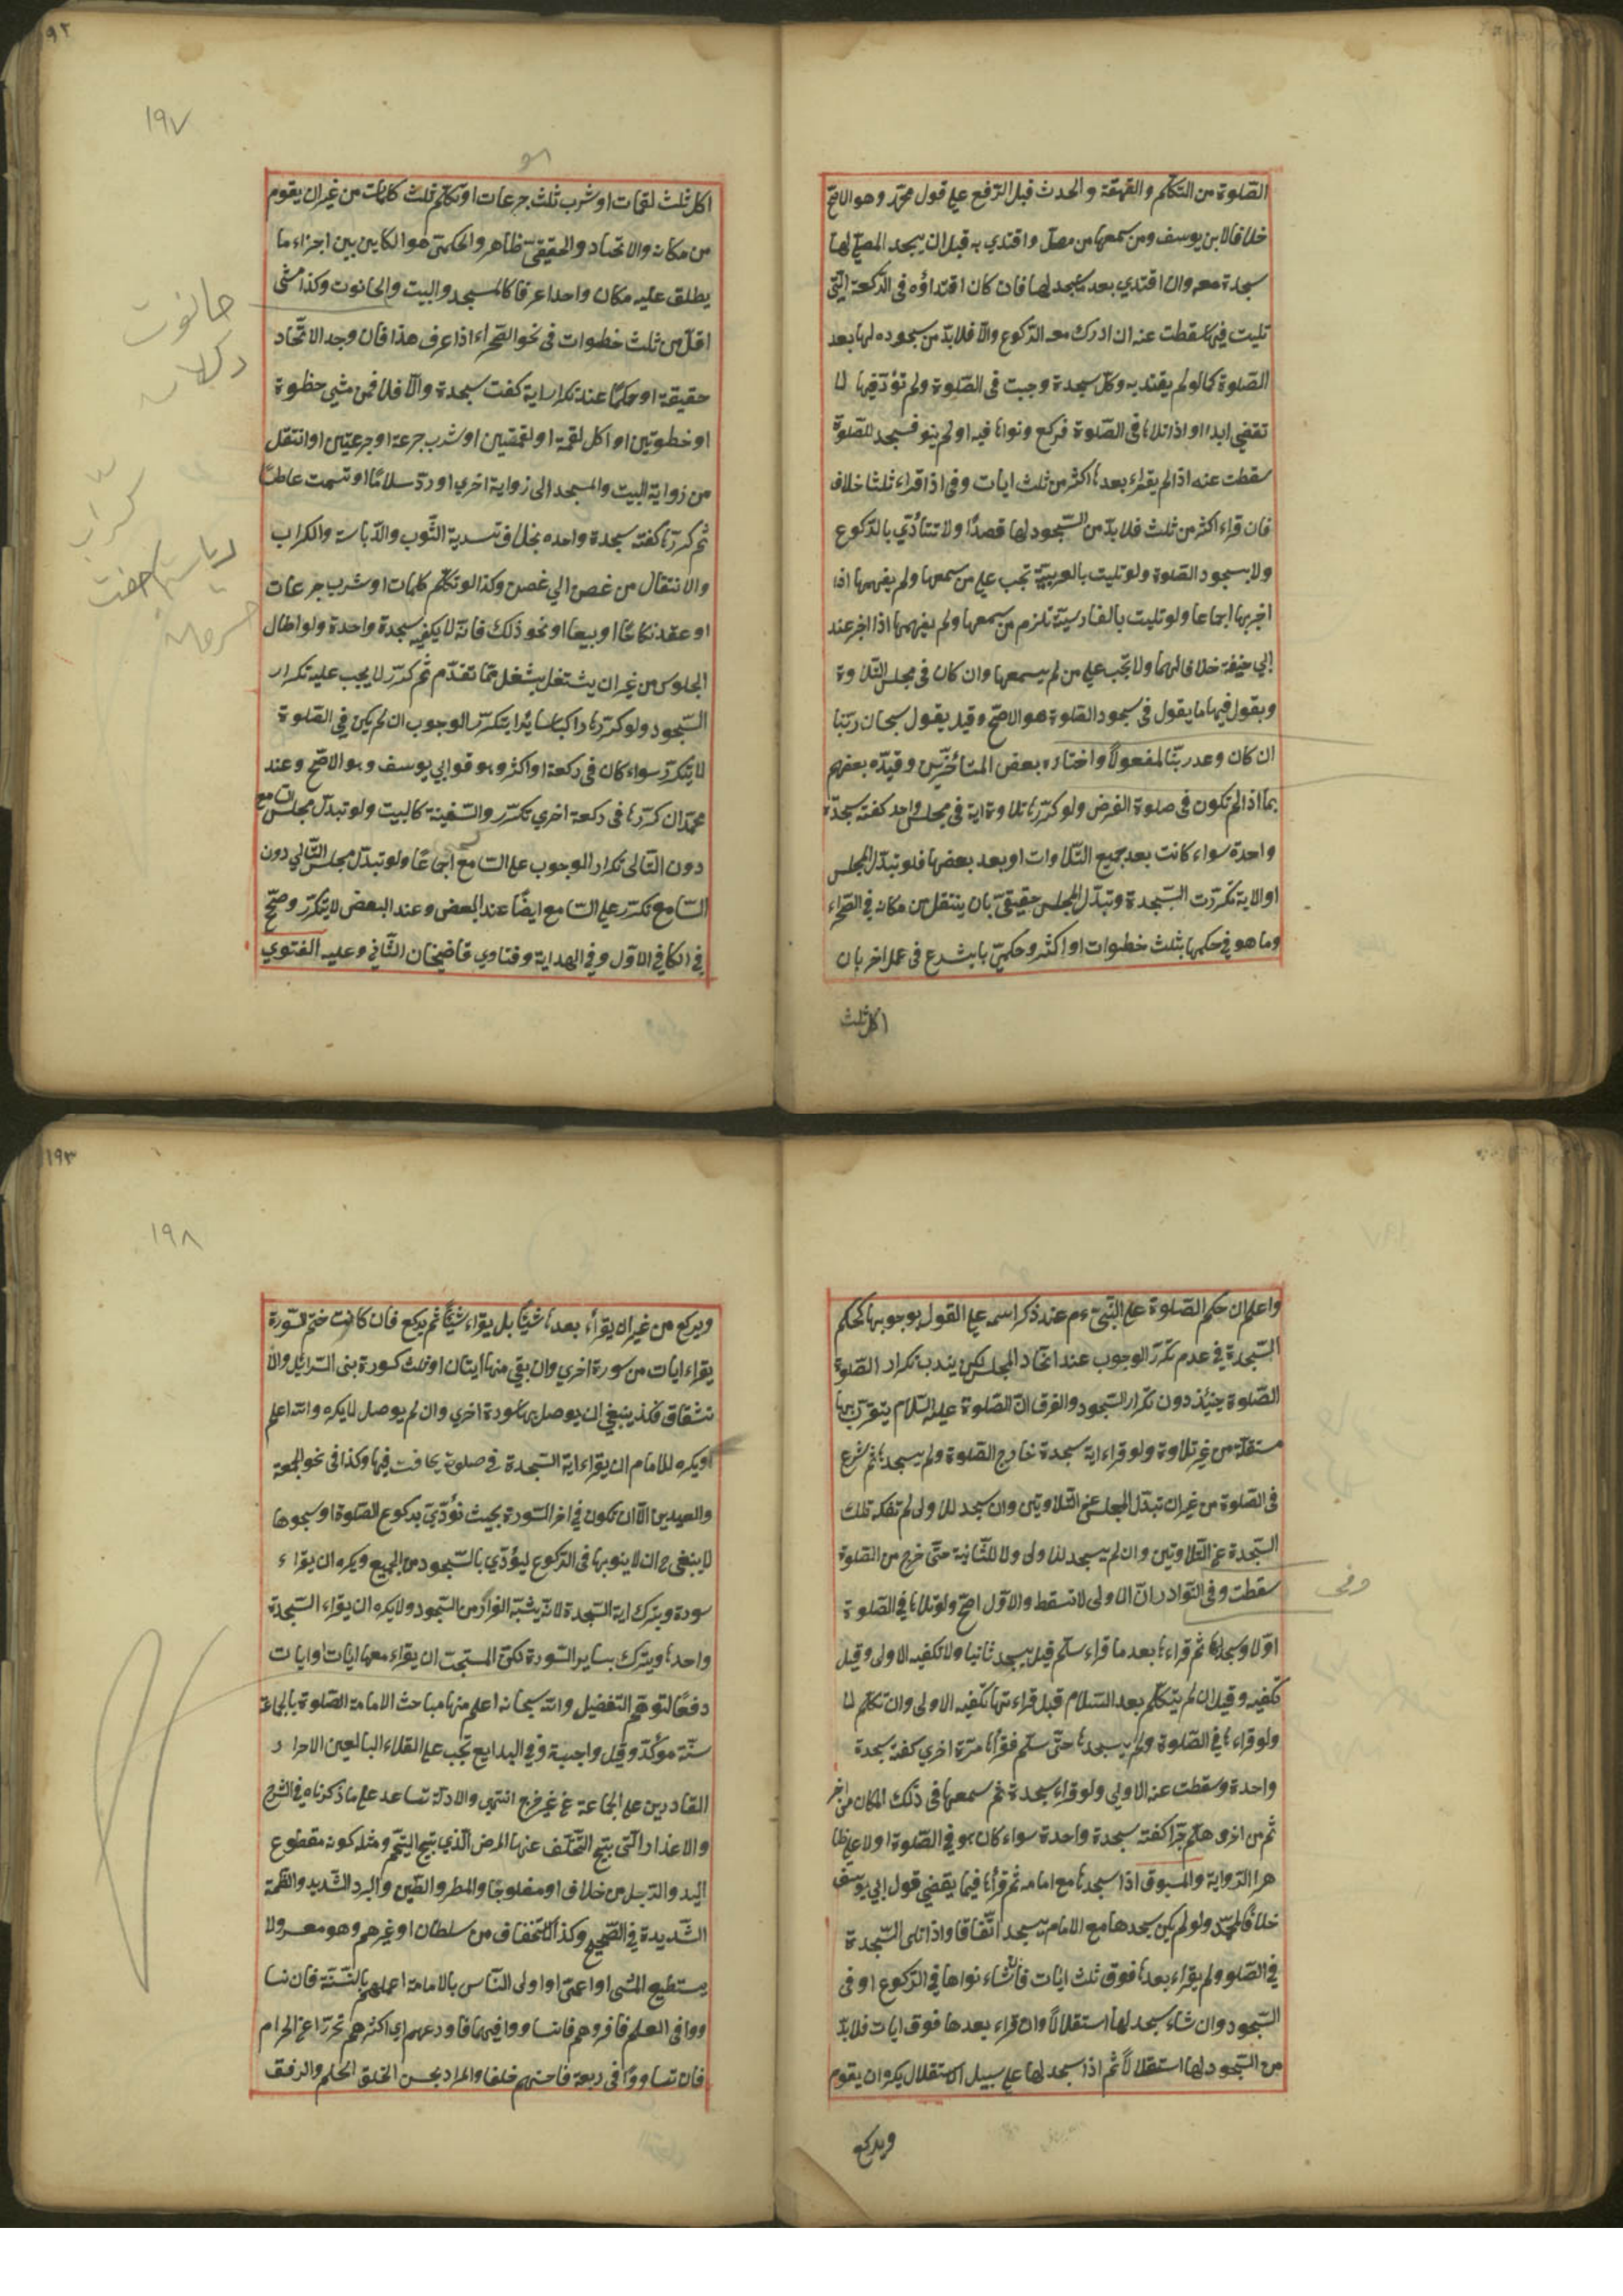 الصّلوة من التكلّم والقهقهة والحدث قبل الرّفع على قول محمّد وهو الاصحّ
خلافا لابن يوسف ومن سمعها من مصلّ واقتدي به قبل ان يسجد المصلّي لها
سجدة معه وان اقتدي بعد ما سجد لها فان كان اقتداؤه فى الرّكعة الّتى
تليت فيها سقطت عنه ان ادرك معه الرّكوع والّا فلا بدّ من سجوده لها بعد
الصّلوة كما لو لم يقتد به وكلّ سجدة وجبت فى الصّلوة ولم تؤدّ فيها لا
تقضي ابدا واذا تلاها فى الصّلوة فركع ونواها فيه او لم ينو فسجد للصّلوة
سقطت عنه اذا لم يقراء بعدها اكثر من ثلث ايات وفى اذا قراء ثلثا خلاف
فان قراء اكثر من ثلث فلا بدّ من السّجود لها قصدًا ولا تتأدّي بالرّكوع
ولا بسجود الصّلوة ولو تليت بالعربيّة تجب على من سمعها ولم يفهمها اذا
اخبر بها اجماعا ولو تليت بالفارسيّة تلزم من سمعها ولم يفهمها اذا اخبر عند
ابي حنيفة خلافا لهما ولا تجب على من لم يسمعها وان كان فى مجلس التلاوة
ويقول فيها ما يقول فى سجود الصّلوة هو الاصحّ وقيل يقول سبحان ربّنا
ان كان وعد ربّنا لمفعولاً واختاره بعض المتأخّرين وقيّده بعضهم
بما اذا لم تكون فى صلوة الفرض ولو كرّرها تلاوة اية فى مجلس واحد كفته سجدة
واحدة سواء كانت بعد جميع التّلاوات او بعد بعضها فلو تبدّل المجلس
او الاية تكرّرت السّجدة وتبدّل المجلس حقيقىّ بان ينتقل من مكانه فى الصّحراء
وما هو فى حكمها بثلث خطوات او اكثر وحكمىّ بان يشرع فى عمل اخر بان
اكل ثلث
٩٢
١٩٧
اكل ثلث لقمات او شرب ثلث جرعات او تكلّم ثلث كلمات من غير ان يقوم
من مكانه والاتحاد والحقيقىّ ظاهر والحكمىّ هو الكاين بين اجزاء ما
يطلق عليه مكان واحدا عرفا كالمسجد والبيت والحانوت وكذا مشى
اقلّ من ثلث خطوات فى نحو الصّحراء اذا عرف هذا فان وجد الاتّحاد
حقيقة او حكمًا عند تكرار اية كفت سجدة والّا فلا فمن مشي خطوة
او خطوتين او اكل لقمة او لقمتين او شرب جرعة او جرعتين او انتقل
من زواية البيت والمسجد الى زواية اخري او ردّ سلامًا او تشمت عاطسًا
ثم كرّرها كفته سجدة واحده بخلاف تسدية الثّوب والدّياسة والكراب
والانتقال من غصن الي غصن وكذا لو تكلّم كلمات او شرب جرعات
او عقد نكاحًا او بيعا او نحو ذلك فانّه لا يكفيه سجدة واحدة ولو اطال
الجلوس من غير ان يشتغل بشغل ممّا تقدّم ثم كرّر لا يجب عليه تكرار
السّجود ولو كرّرها راكبا سايرا يتكرّر الوجوب ان لم يكن فى الصّلوة
لا يتكرّر سواء كان فى ركعة او اكثر وهو قول ابي يوسف وهو الاصحّ وعند
محمّد ان كرّرها فى ركعة اخري تكرّر والسّفينة كالبيت ولو تبدّل مجلس السّامع
دون التّالى تكرار الوجوب على السّامع اجماعًا ولو تبدّل مجلس التّالي دون
السّامع تكرّر على السّامع ايضًا عند البعض وعند البعض لا يتكرّر وصحّح
فى الكافى الاوّل وفى الهداية وفتاوي قاضيخان الثّانى وعليه الفتوي
حانوت
دكان
كراب
واعلم ان حكم الصّلوة على النّبىّ ءم عند ذكر اسمه على القول بوجوبها كحكم
السّجدة فى عدم تكرّر الوجوب عند اتحاد المجلس لكن يندب تكرار الصّلوة
الصّلوة حينئذ دون تكرار السّجود والفرق انّ الصّلوة عليه السّلام يتقرّب بها
مستقلّة من غير تلاوة ولو قراء اية سجدة خارج الصّلوة ولم يسجدها ثم شرع
فى الصّلوة من غير ان تبدّل المجلس عن التلاوتين وان سجد للاولى لم تفكه تلك
السّجدة عن التّلاوتين وان لم يسجد للاولى ولا للثّانية حتّى خرج من الصّلوة
سقطت وفى النّوادر انّ الاولى لا تسقط والاوّل اصحّ ولو تلاها فى الصّلوة
اوّلا وسجدها ثم قراءها بعد ما قراء سلّم قيل يسجد ثانيا ولا تكفيه الاولى وقيل
تكفيه وقيل ان لم يتكلّم بعد السّلام قبل قراءتها تكفيه الاولى وان تكلّم لا
ولو قراءها فى الصّلوة ولم يسجدها حتّى سلّم فقرأها مرّة اخري كفته سجدة
واحدة وسقطت عنه الاولي ولو قراء سجدة ثم سمعها فى ذلك المكان من اخر
ثم من اخر وهلّم جرّا كفته سجدة واحدة سواء كان هو فى الصّلوة اولا على ظا
هر الرّواية والمسبوق اذا سجدها مع امامه ثم قرأها فيما يقضي قول ابي يوسف
خلافًا لمحمّد ولو لم يكن سجدها مع الامام يسجد اتّفاقا واذا تلى السّجدة
فى الصّلو ولم يقراء بعدها فوق ثلث ايات فان شاء نواها فى الرّكوع او فى
السّجود وان شاء سجد لها استقلالاً وان قراء بعدها فوق ايات فلا بدّ
من السّجود لها استقلالاً ثم اذا سجد لها على سبيل الاستقلال يكره ان يقوم
ويركع
وفى
١٩٣
١٩٨
ويركع من غير ان يقرأء بعدها شيئًا بل يقراء شيئًا ثم يركع فان كانت ختم السّورة
يقراء ايات من سورة اخري وان بقى منها ايتان او ثلث كسورة بنى اسرائيل والا
نشقاق فكذ ينبغي ان يوصل بها سورة اخري وان لم يوصل لا يكره والله اعلم
ويكره للامام ان يقراء اية السّجدة فى صلوة يخافت فيها وكذا فى نحو الجمعة
والعيدين الّا ان تكون فى اخر السّورة بحيث تؤدّي بركوع الصّلوة او سجوها
لا ينبغى ح ان لا ينويها فى الرّكوع ليؤدّي بالسّجود من الجميع ويكره ان يقراء
سورة ويترك اية السّجدة لانّه يشبّه الفرار من السّجود ولا يكره ان يقراء السّجدة
واحدها ويترك بساير السّورة لكن المستحبّ ان يقراء معها ايات او ايات
دفعًا لتوهّم التّفضيل والله سبحانه اعلم منها مباحث الامامة الصّلوة بالجماعة
سنّة مؤكّدة وقيل واجبة وفى البدايع تجب على العقلاء البالغين الاحرار
القادرين على الجماعة من غير حرج انتهى والادلّة تساعد على ما ذكرناه فى الشّرح
والاعذار الّتى يبيح التّخلّف عنها المرض الّذي يبيح التّيمّم ومثله كونه مقطوع
اليد والرّجل من خلاف او مفلوجًا والمطر والطّين والبرد الشّديد والظّلمة
الشّديدة فى الصّحيح وكذا الاستخفاف من سلطان او غيرهم وهو معسر ولا
يستطيع المشى او اعمى او اولى النّاس بالامامة اعلمهم بالسّنّة فان تسا
ووا فى العلم فاقروهم فان تساووا فيهما فاورعهم اي اكثرهم تحرّزا عن الحرام
فان تساووا فى ربعة فاحسنهم خلقا والمراد بحسن الخلق الحلم والرفق